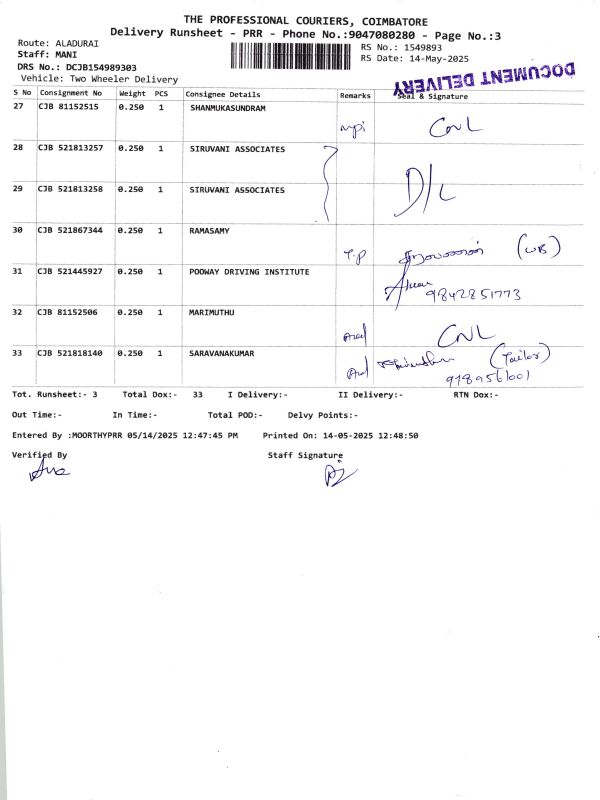 THE PROFESSIONAL COURIERS, COIMBATORE
Delivery Runsheet - PRR - Phone No.:9047080280 - Page No.:3
Route: ALADURAI
RS No.: 1549893
Staff: MANI
RS Date: 14-May-2025
DRS No.: DCJB154989303
Vehicle: Two Wheeler Delivery
DOCUMENT DELIVERY
S No Consignment No Weight PCS Consignee Details Remarks Seal & Signature
27 CJB 81152515 0.250 1 SHANMUKASUNDRAM
CNL
28 CJB 521813257 0.250 1 SIRUVANI ASSOCIATES
D/L
29 CJB 521813258 0.250 1 SIRUVANI ASSOCIATES
30 CJB 521867344 0.250 1 RAMASAMY
T.P
31 CJB 521445927 0.250 1 POOWAY DRIVING INSTITUTE
9842851773
32 CJB 81152506 0.250 1 MARIMUTHU
CNL
33 CJB 521818140 0.250 1 SARAVANAKUMAR
(Tailor)
Tot. Runsheet:- 3 Total Dox:- 33 I Delivery:- II Delivery:- RTN Dox:-
Out Time:- In Time:- Total POD:- Delvy Points:-
Entered By :MOORTHYPRR 05/14/2025 12:47:45 PM Printed On: 14-05-2025 12:48:50
Verified By Staff Signature